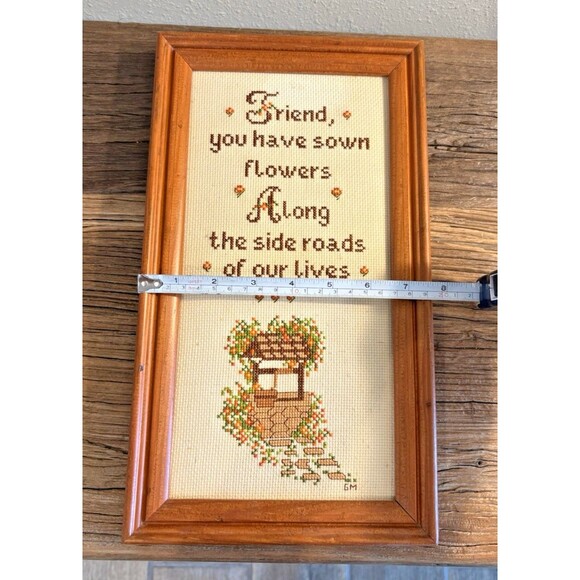 Friend,
you have sown
flowers
Along
the side roads
of our lives
1 2 3 4 5 6 7 8
SM